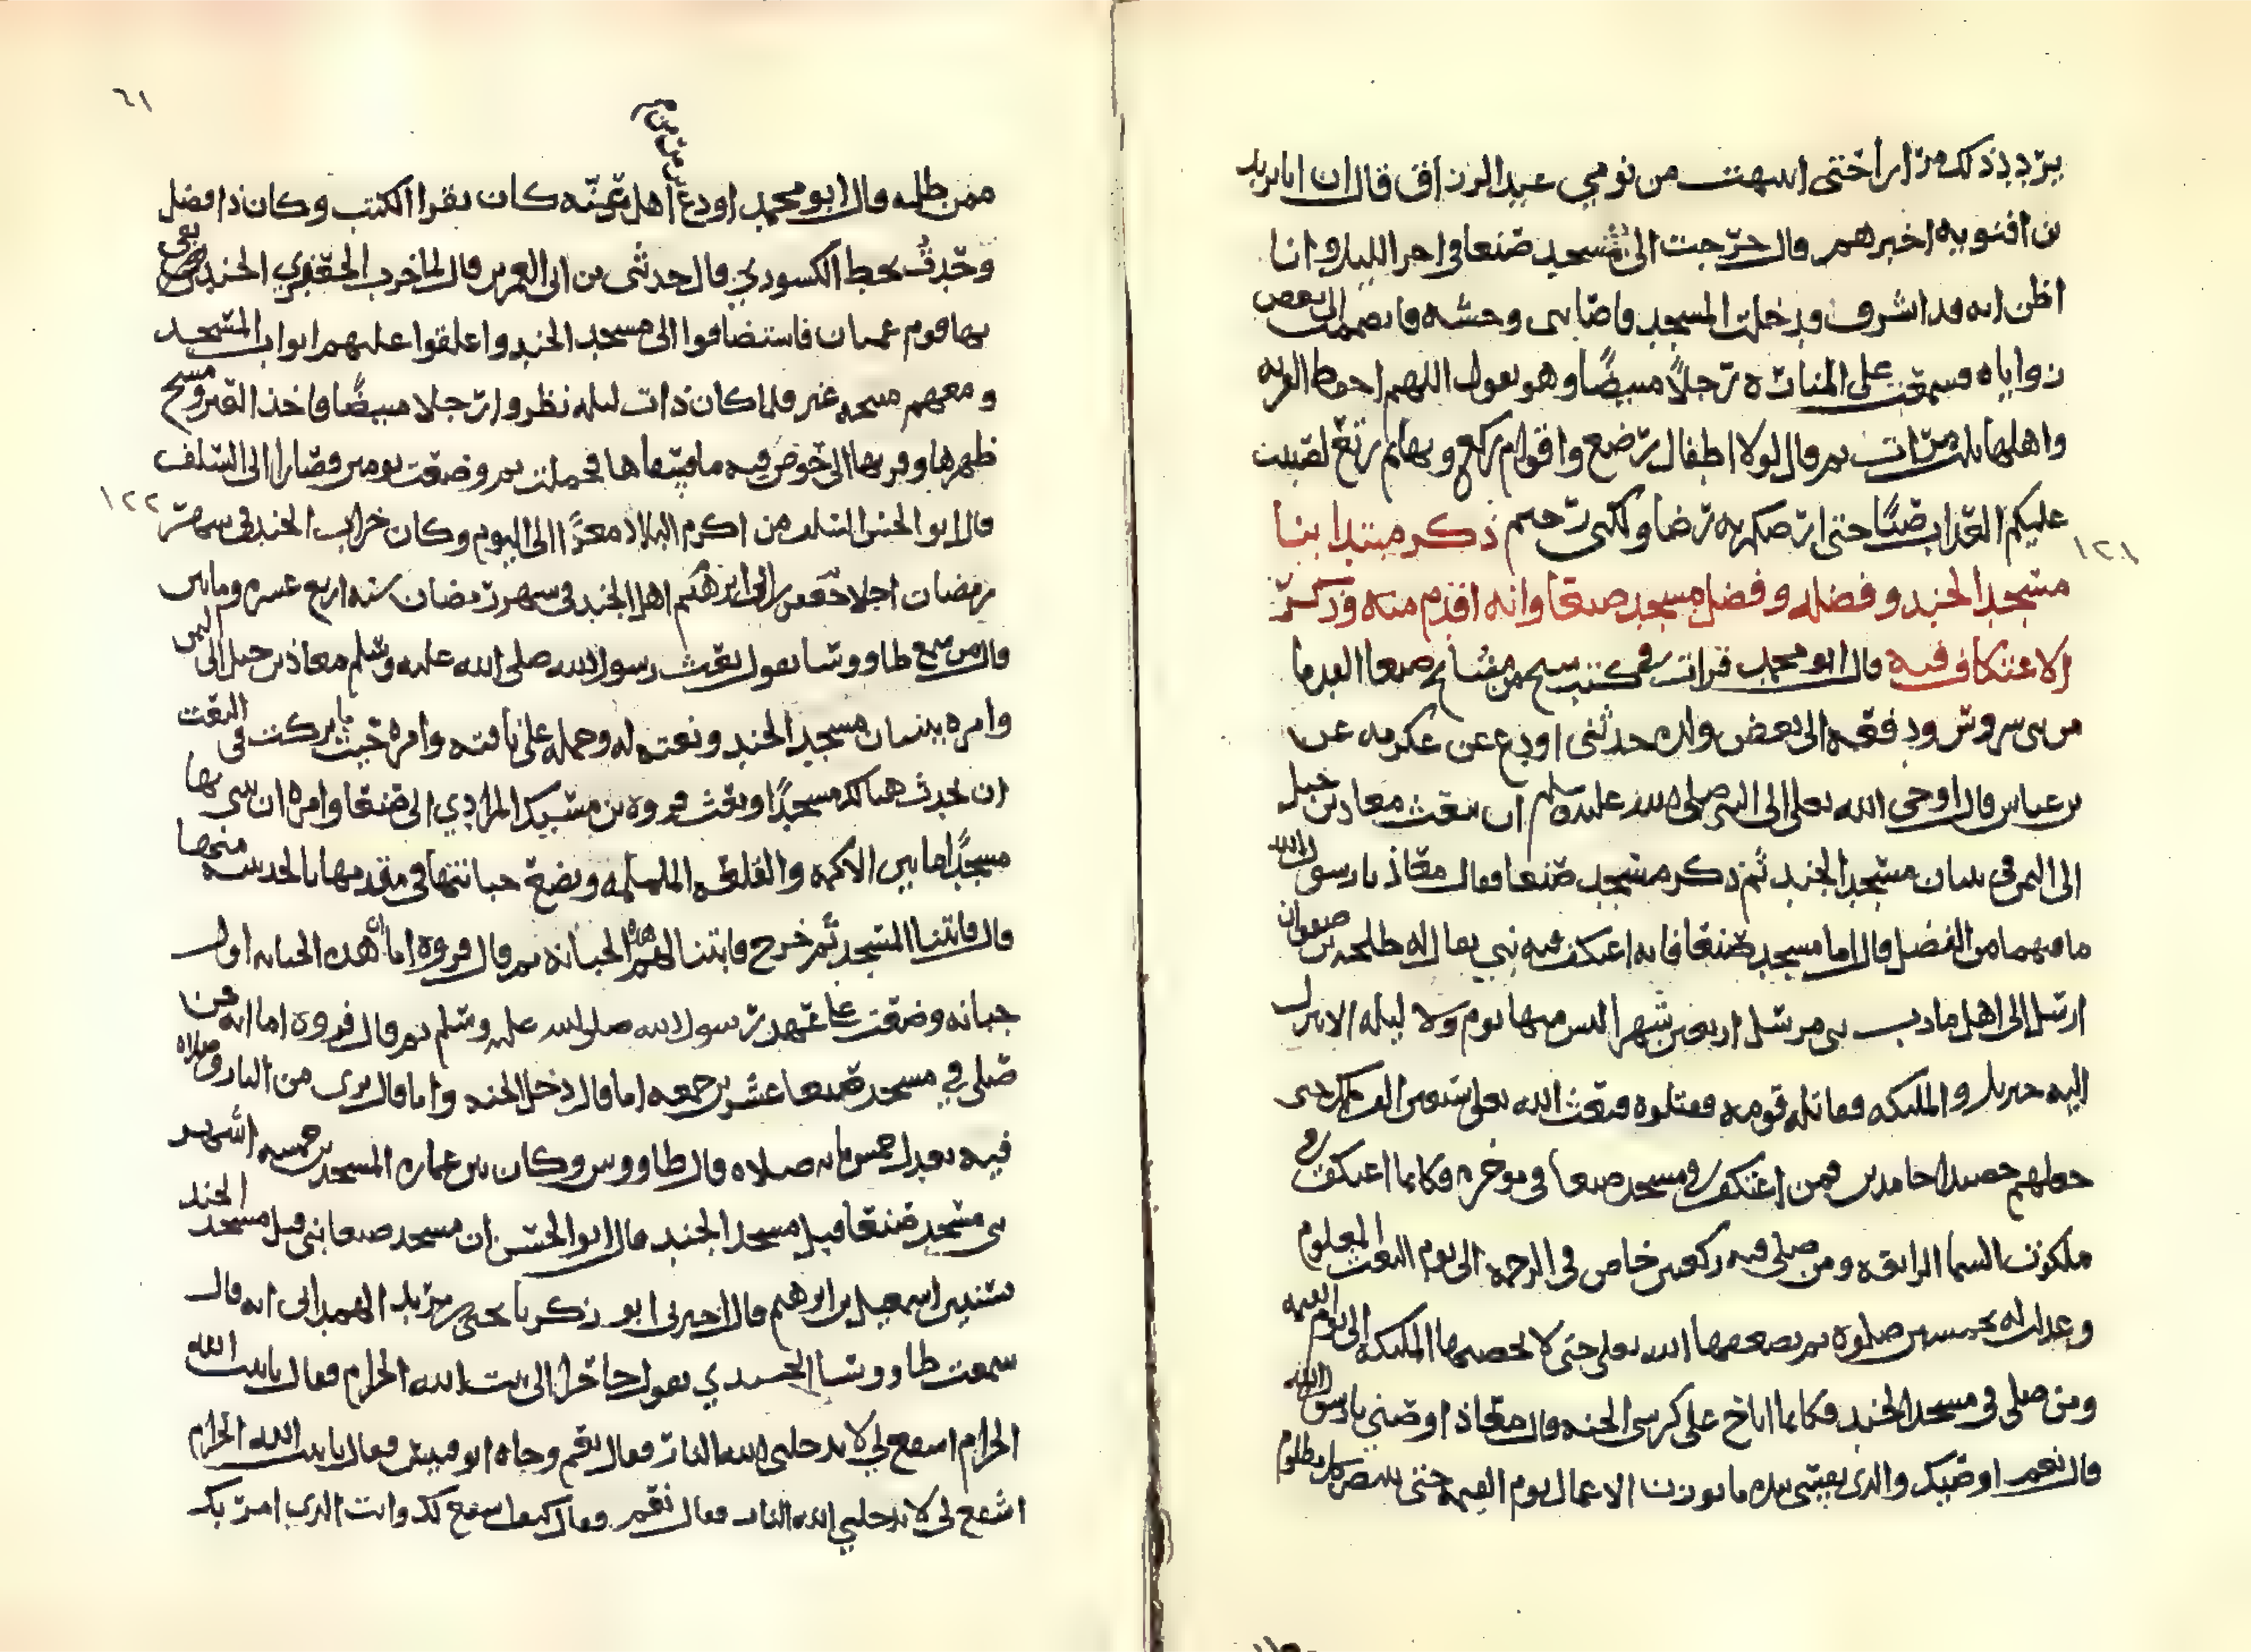 يردد ذلك مرارا حتى انبهت من نومي عبد الرزاق قال ان اباىزيد
بن افنويه اخبرهم قال خرجت الى مسجد صنعا في اخر الليل وانا
اظن انه قد اشرف فدخلت المسجد فاصابنى وحشه فانضممت الى بعض
زواياه فسمعت على المنارة رجلا مبيضا وهو يقول اللهم احفظ القريه
واهلها ثلث مرات ثم قال لولا اطفال رضع واقوام ركع وبهائم رتع لصببت
عليكم العذاب صبا حتى ارضكم به رضا ولكنى رحيم ذكر مبتدا بنا
مسجد الجند وفضله وفضل مسجد صنعا وانه اقدم منه وذكر
الاعتكاف فيه قال ابو محمد قرات في كتب شيخ من مشايخ صنعا القدما
من بنى سروش ودفعه الى بعض ولده حدثنى اودع عن عكرمه عن
بن عباس قال اوحى الله تعلى الى النبى صلى الله عليه وسلم ان ىبعث معاذ بن جبل
الى اليمن في بنيان مسجد الجند ثم ذكر مسجد صنعا فقال معاذ يا رسول الله
ما فيهما من الفضل قال اما مسجد صنعا فانه اعتكف فيه نبي يقال له حنظلة بن صفوان
ارسل الى اهل مادب نبى مرسل اربعين شهرا ليس منها يوم ولا ليله الا ينزل
اليه جبريل والمليكه فقاتله قومه فقتلوه فبعث الله تعلى سبعين الف ملك حتى
جعلهم حصيدا خامدين فمن اعتكف في مسجد صنعا في موخره فكانما اعتكف في
ملكوت السما الرابعة ومن صلى فيه ركعتين خاض في الرحمة الى يوم البعث المعلوم
وعدلت له بخمسين صلوة ثم يضعفها الله تعلى حتى لا يحصيها المليكة الى يوم القيمه
ومن صلى في مسجد الجند فكانما اناخ على كرسى الجنه قال معاذ اوصني يا رسول الله
قال نعم اوصيك والذى نفسى بيده ما يوزن الاعمال يوم القيمه حتى ينتصر كل مظلوم
١٢١
٦١
ممن ظلمه قال ابو محمد اودع اهل كان يقرا الكتب وكان ذا فضل
وحدث بخط الكسوري قال حدثنى بن ابى العمر قال لما خرب الجعفري الجند بقى
بها قوم عميان فاستضافوا الى مسجد الجند واغلقوا عليهم ابواب المسجد
ومعهم منيحة عنز فلما كان ذات ليله نظروا رجلا مبيضا فاخذ العنز ومسح
ظهرها وقربها الى حوض فيه ما فسقاها فحملت ثم وضعت يومين فصارا الى السلف
قال ابو الحسن السلف من اكرم البلاد معزا الى اليوم وكان خراب الجند في شهر
١٢٢
رمضان اجلا جعفر بن ابراهيم اهل الجند في شهر رمضان سنه اربع عشره ومايتين
قال من سمع طاووسا يقول بعث رسول الله صلى الله عليه وسلم معاذ بن جبل الى اليمن
وامره ببنيان مسجد الجند ونعته له وحمله على ناقته وامره حيث ما بركت في البقعه
ان يحدث هنالك مسجدا وبعث فروة بن مسيك المرادي الى صنعا وامره ان يبنى بها
مسجدا ما بين الاكمة والغلظه الململمه ويضع جبانتها في مقدمها بالحديبه منحها
قال فابتنا المسجد ثم خرج فابتنا لهم هذه الجبانة ثم قال فروة اما ان هذه الجبانه اول
جبانه وضعت على عهد رسول الله صلى الله عليه وسلم ثم قال فروة اما انه من
صلى في مسجد صنعا عشرين جمعه اما قال دخل الجنه واما قال برى من النار وصلاة
فيه بعدل خمس مائه صلاة قال طاووس وكان بين عمارة المسجدين خمسه اشهر
بنى مسجد صنعا قبل مسجد الجند قال ابو الحسن ان مسجد صنعا بني قبل مسجد الجند
سندير اسمعيل بن ابرهيم قال اخبرنى ابو زكريا يحيى بن مزيد الهمدانى انه قال
سمعت طاووسا الجندي يقول جا قرا الى بيت الله الحرام فقال يا بيت الله
الحرام اشفع لي لا يدخلنى الله النار فقال نعم وجاه ابو قبيس فقال يا بيت الله الحرام
اشفع لى لا يدخلني الله النار فقال نعم فقال كيف اشفع لك وانت الذى امر بك